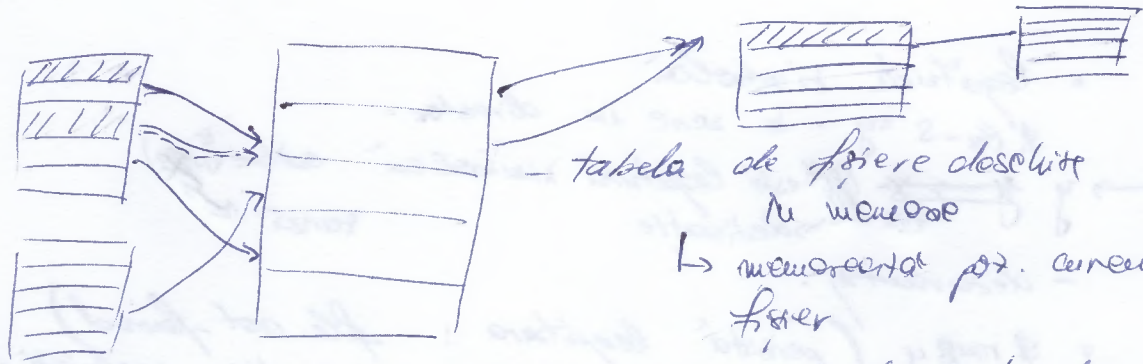 - tabela de fișiere deschise
în memorie
↳ memorează poz. curen
fișier